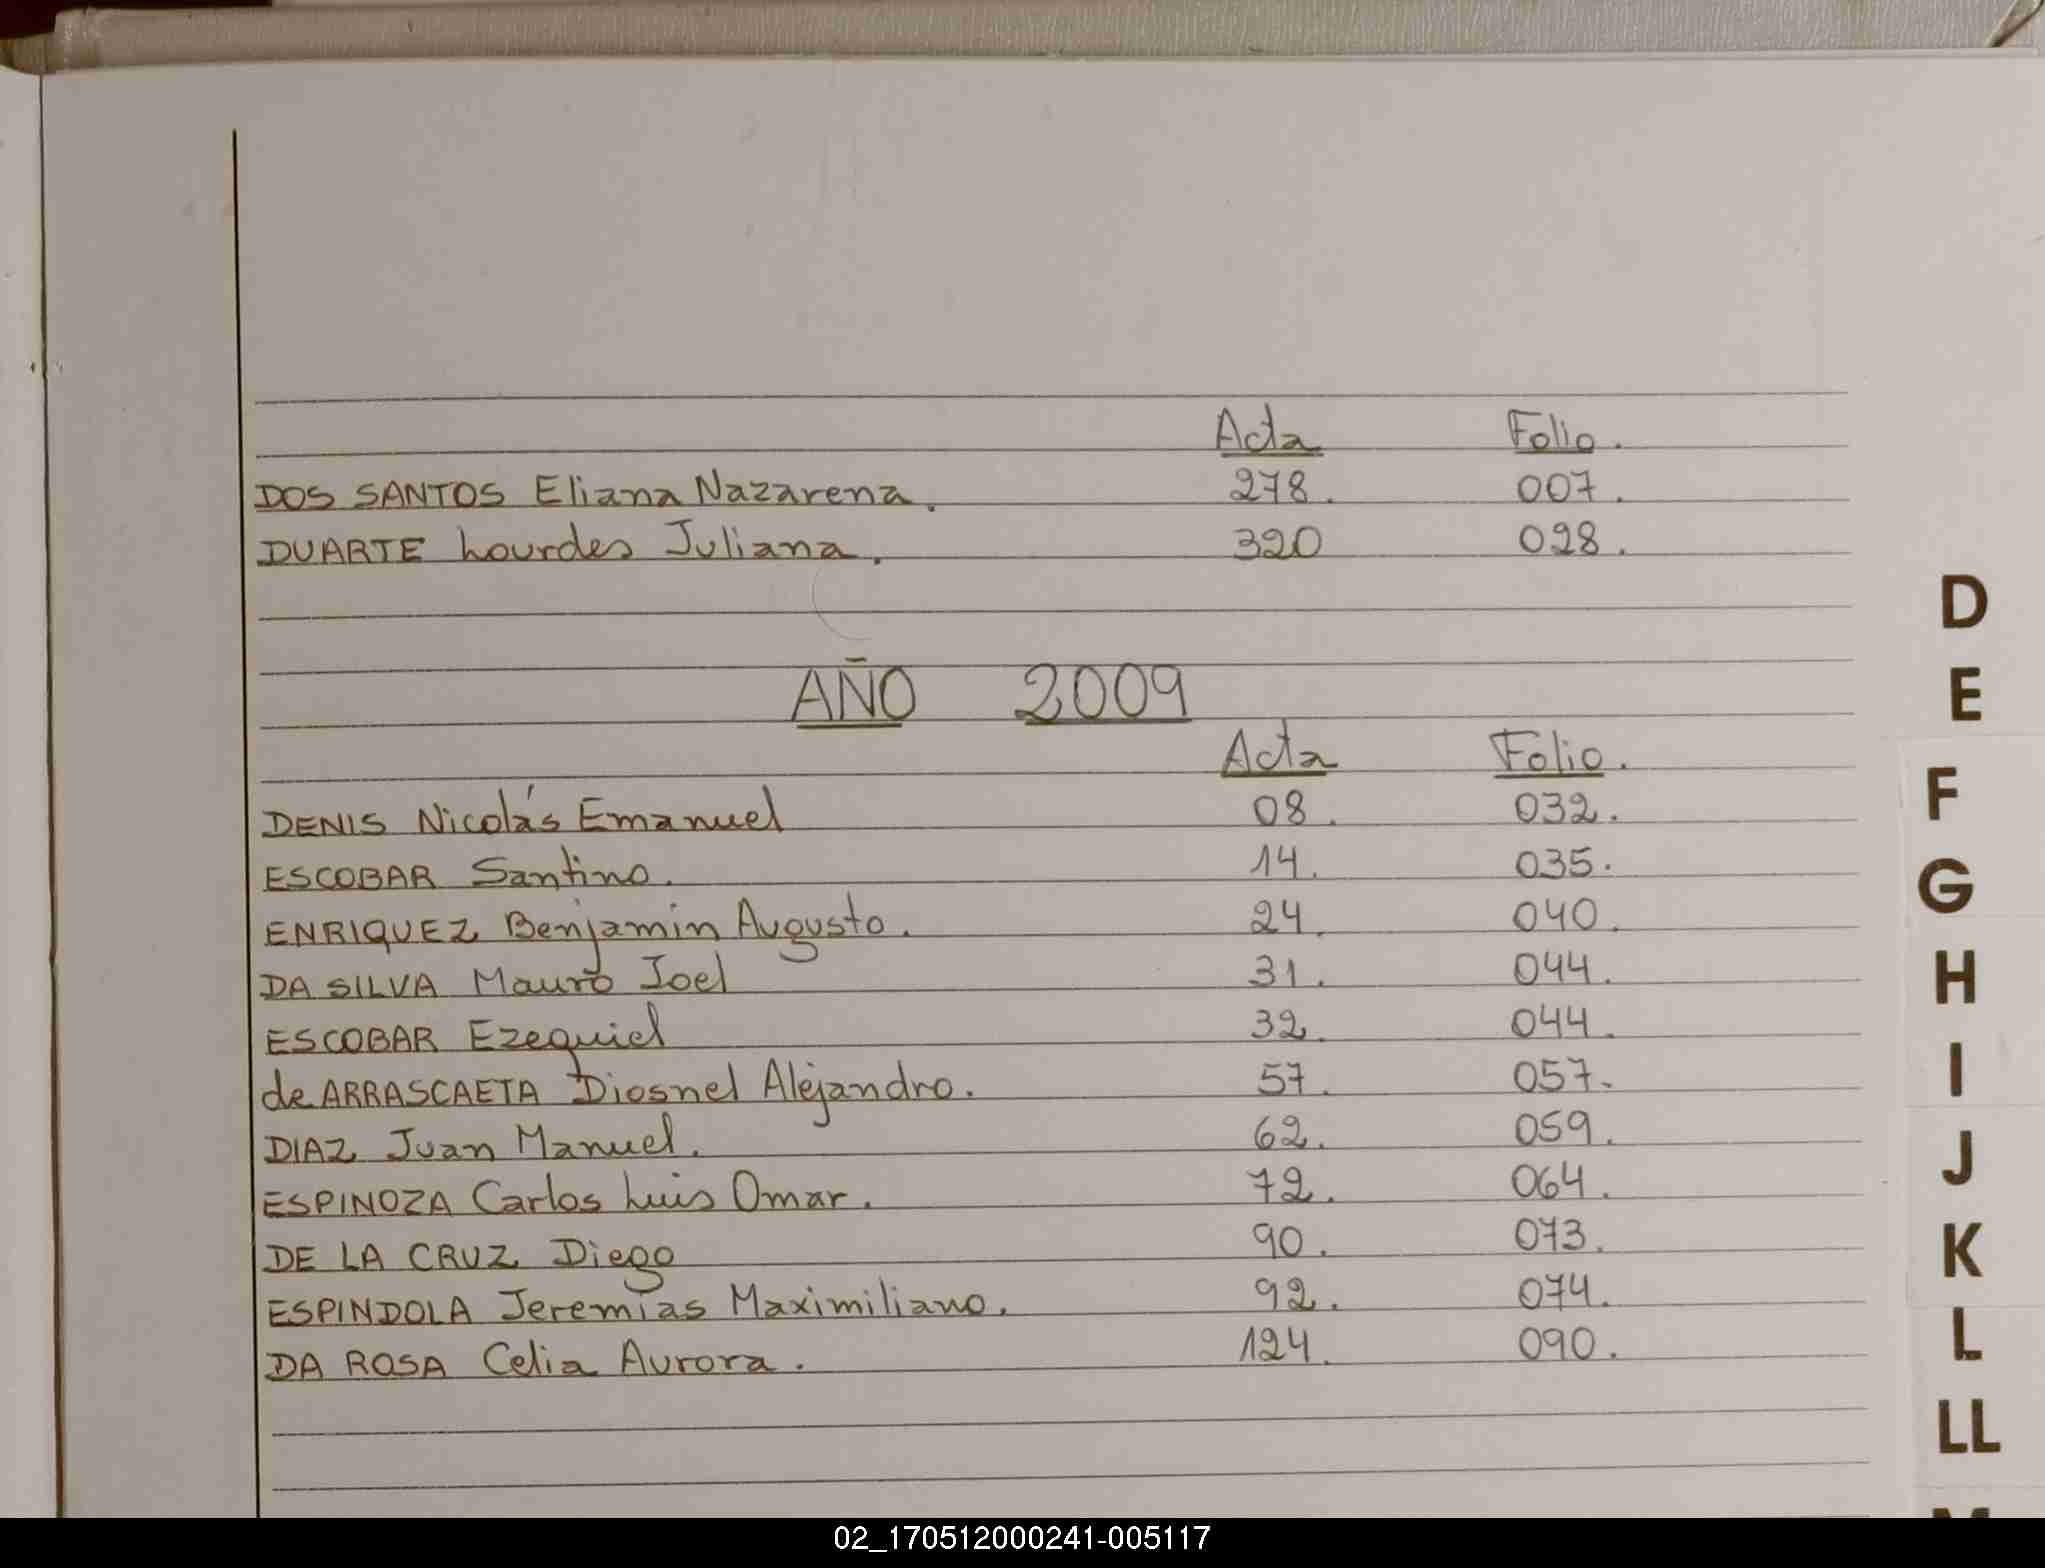 Acta Folio.
DOS SANTOS Eliana Nazarena. 278. 007.
DUARTE Lourdes Juliana. 320 028.
AÑO 2009
Acta Folio.
DENIS Nicolás Emanuel 08. 032.
ESCOBAR Santino. 14. 035.
ENRIQUEZ Benjamin Augusto. 24. 040.
DA SILVA Mauro Joel 31. 044.
ESCOBAR Ezequiel 32. 044.
de ARRASCAETA Diosnel Alejandro. 57. 057.
DIAZ Juan Manuel. 62. 059.
ESPINOZA Carlos Luis Omar. 72. 064.
DE LA CRUZ Diego 90. 073.
ESPINDOLA Jeremías Maximiliano. 92. 074.
DA ROSA Celia Aurora. 124. 090.
D
E
F
G
H
I
J
K
L
LL
02_170512000241-005117